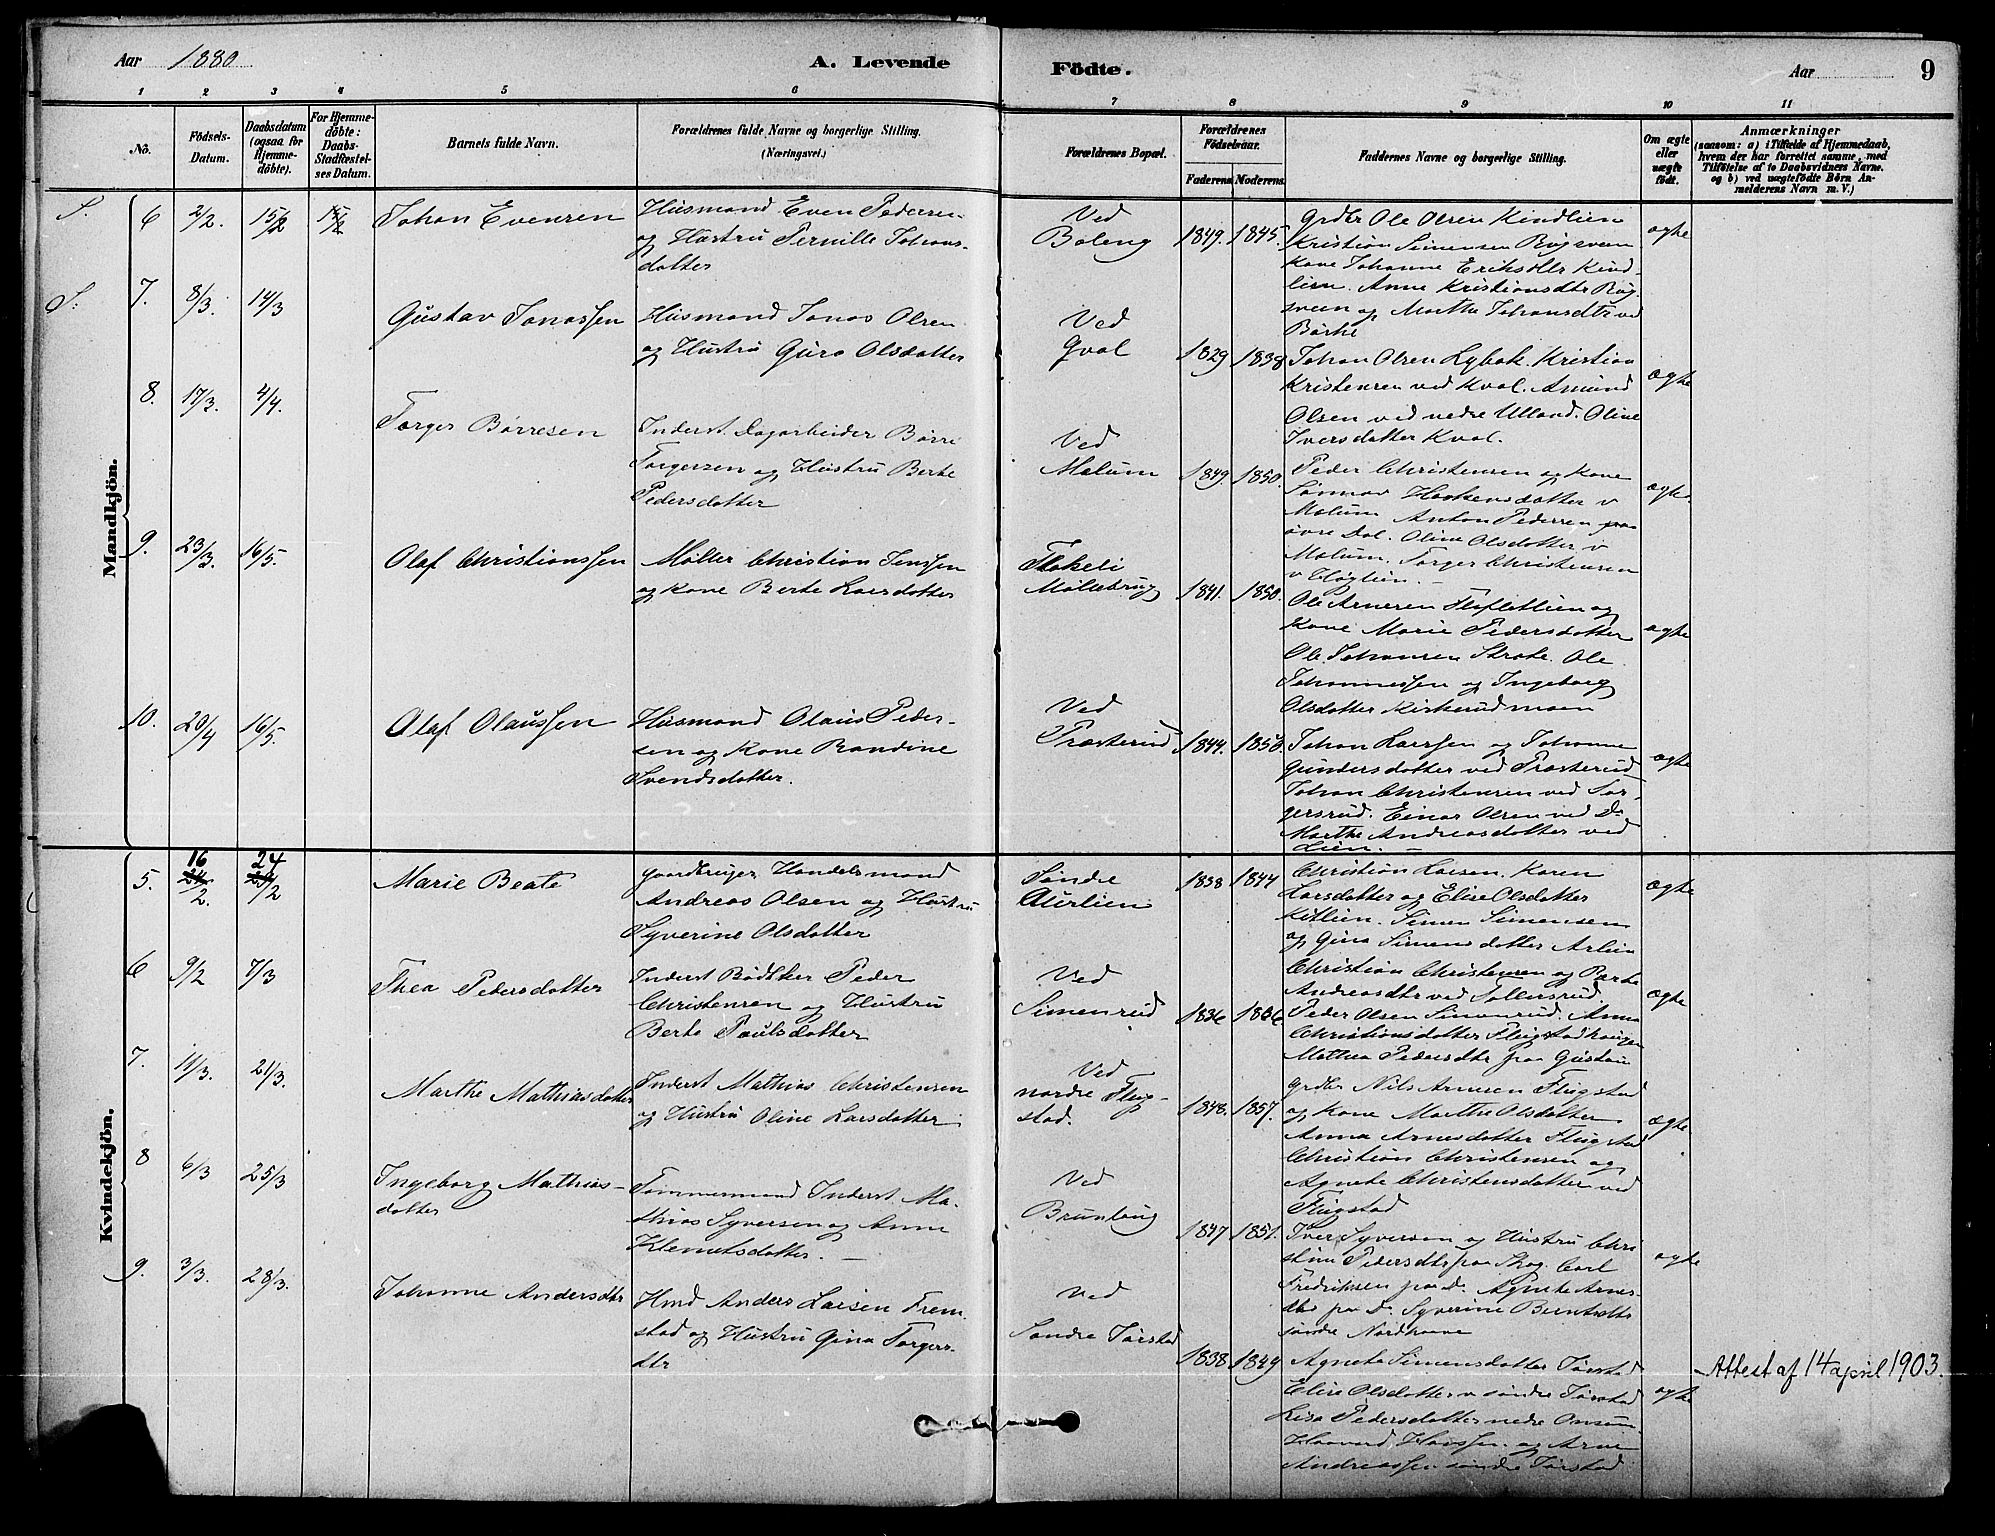 Aar 1880 A. Levende Födte. Aar 9
1 2 3 4 5 6 7 8 9 10 11
No.
Födsels-
Datum.
Daabsdatum
(ogsaa for
Hjemme-
döbte).
For Hjemme-
döbte:
Daabs-
Stadfæstel-
ses Datum.
Barnets fulde Navn.
Forældrenes fulde Navne og borgerlige Stilling.
(Næringsvei.)
Forældrenes Bopæl.
Forældrenes
Födselsaar.
Faderens. Moderens.
Faddernes Navne og borgerlige Stilling.
Om ægte
eller
uægte
födt.
Anmærkninger
(saasom: a) i Tilfælde af Hjemmedaab,
hvem der har forrettet samme, med
Tilföielse af to Daabsvidners Navne,
og b) ved uægtefödte Börn An-
melderens Navn m. V.)
Mandkjön.
S. 6 2/2. 15/2 15/2 Johan Evensen
Husmand Even Pedersen
og Hustru Pernille Johans-
datter
Ved
Boleng 1849. 1845.
Grdbr Ole Olsen Kindlien
Kristian Simensen Bøgsveen
Kone Johanne Eriksdtr Kind-
lien. Anne Kristiansdtr Bøg
sveen og Marthe Johansdtr ved
Børke
ægte
S. 7. 8/3. 14/3 Gustav Jonassen
Husmand Jonas Olsen
og Hustru Guro Olsdatter
Ved
Qval 1829 1838
Johan Olsen Lybak. Kristian
Kristensen ved Kval. Amund
Olsen ved nedre Ulland. Oline
Iversdatter Kval.
ægte
8. 17/3. 4/4. Torger Børresen
Inderst Dagarbeider Børre
Torgersen og Hustru Berte
Pedersdatter
Ved
Molum 1849. 1850.
Peder Christensen og Kone
Sønnøv Haakensdatter v
Molum Anton Pedersen fra
øvre Dal. Oline Olsdatter v
Molum. Torger Christensen
v Høglien. —
ægte.
9. 23/3. 16/5. Olaf Christianssen
Møller Christian Jenssen
og Kone Berte Larsdatter
Møllebrug 1841. 1850.
Ole Arnesen
Kone Marie Pedersdatter
Ole Johansen Ole
Johannessen og Ingeborg
Olsdatter Kirkerudmoen
ægte
10. 20/4 16/5. Olaf Olaussen
Husmand Olaus Peder-
sen og Kone Randine
Svendsdatter.
Ved
Præsterud 1844. 1850.
Johan Larssen og Johanne
Gundersdatter ved Præsterud
Johan Christensen ved Tor-
gersrud. Einar Olsen ved Do
Marthe Andreasdatter ved
Lien. —
ægte
Kvindekjön.
16 24
5. 24/2. 29/2 Marie Beate
Gaardbruger Handelsmand
Andreas Olsen og Hustru
Syverine Olsdatter
Søndre
Aurlien 1838 1844
Christian Larsen. Karen
Larsdatter og Elise Olsdatter
Kitlien. Simen Simensen
og Gina Simensdatter
ægte
6 9/2 7/3 Thea Pedersdatter
Inderst Bødtker Peder
Christensen og Hustru
Berte Paulsdatter
Ved
Simenrud 1836 1836
Christian Christensen og
Andreasdtr ved Sollersrud.
Peder Olsen Simenrud. Anne
Christiansdatter Flugstadhougen
Mathea Pedersdtr paa
ægte
7. 11/3. 21/3. Marthe Mathiasdatter
Inderst Mathias Christensen
og Hustru Oline Larsdatter
Ved
nordre Flug-
stad. 1848. 1857.
Grdbr Nils Arnesen Flugstad
og Kone Marthe Olsdatter
Anna Arnesdatter Flugstad
Christian Christensen og
Agnete Christensdatter ved
Flugstad
ægte.
8 6/3 25/3 Ingeborg Mathias-
datter
Tømmermand Inderst Ma-
thias Syversen og Anne
Klemetsdatter. —
Ved
Brunlaug 1847 1851.
Iver Syversen og Hustru Chri
stine Pedersdtr paa Skog. Carl
Fredriksen paa Do. Agnete Arnes
dtr paa Do. Syverine Berntsdtr
søndre Nordhove
ægte
9. 3/3. 28/3. Johanne Andersdtr
Hmd Anders Larsen Frem
stad og Hustru Gina Torgers-
dtr
Ved
Søndre Tørstad 1838 1849
Agnete Simensdatter Tørstad
Elise Olsdatter v søndre Tørstad
Lisa Pedersdatter nedre
Haavard Hanssen og Arne
Andreassen søndre Tørstad
ægte
Attest af 14 april 1903.